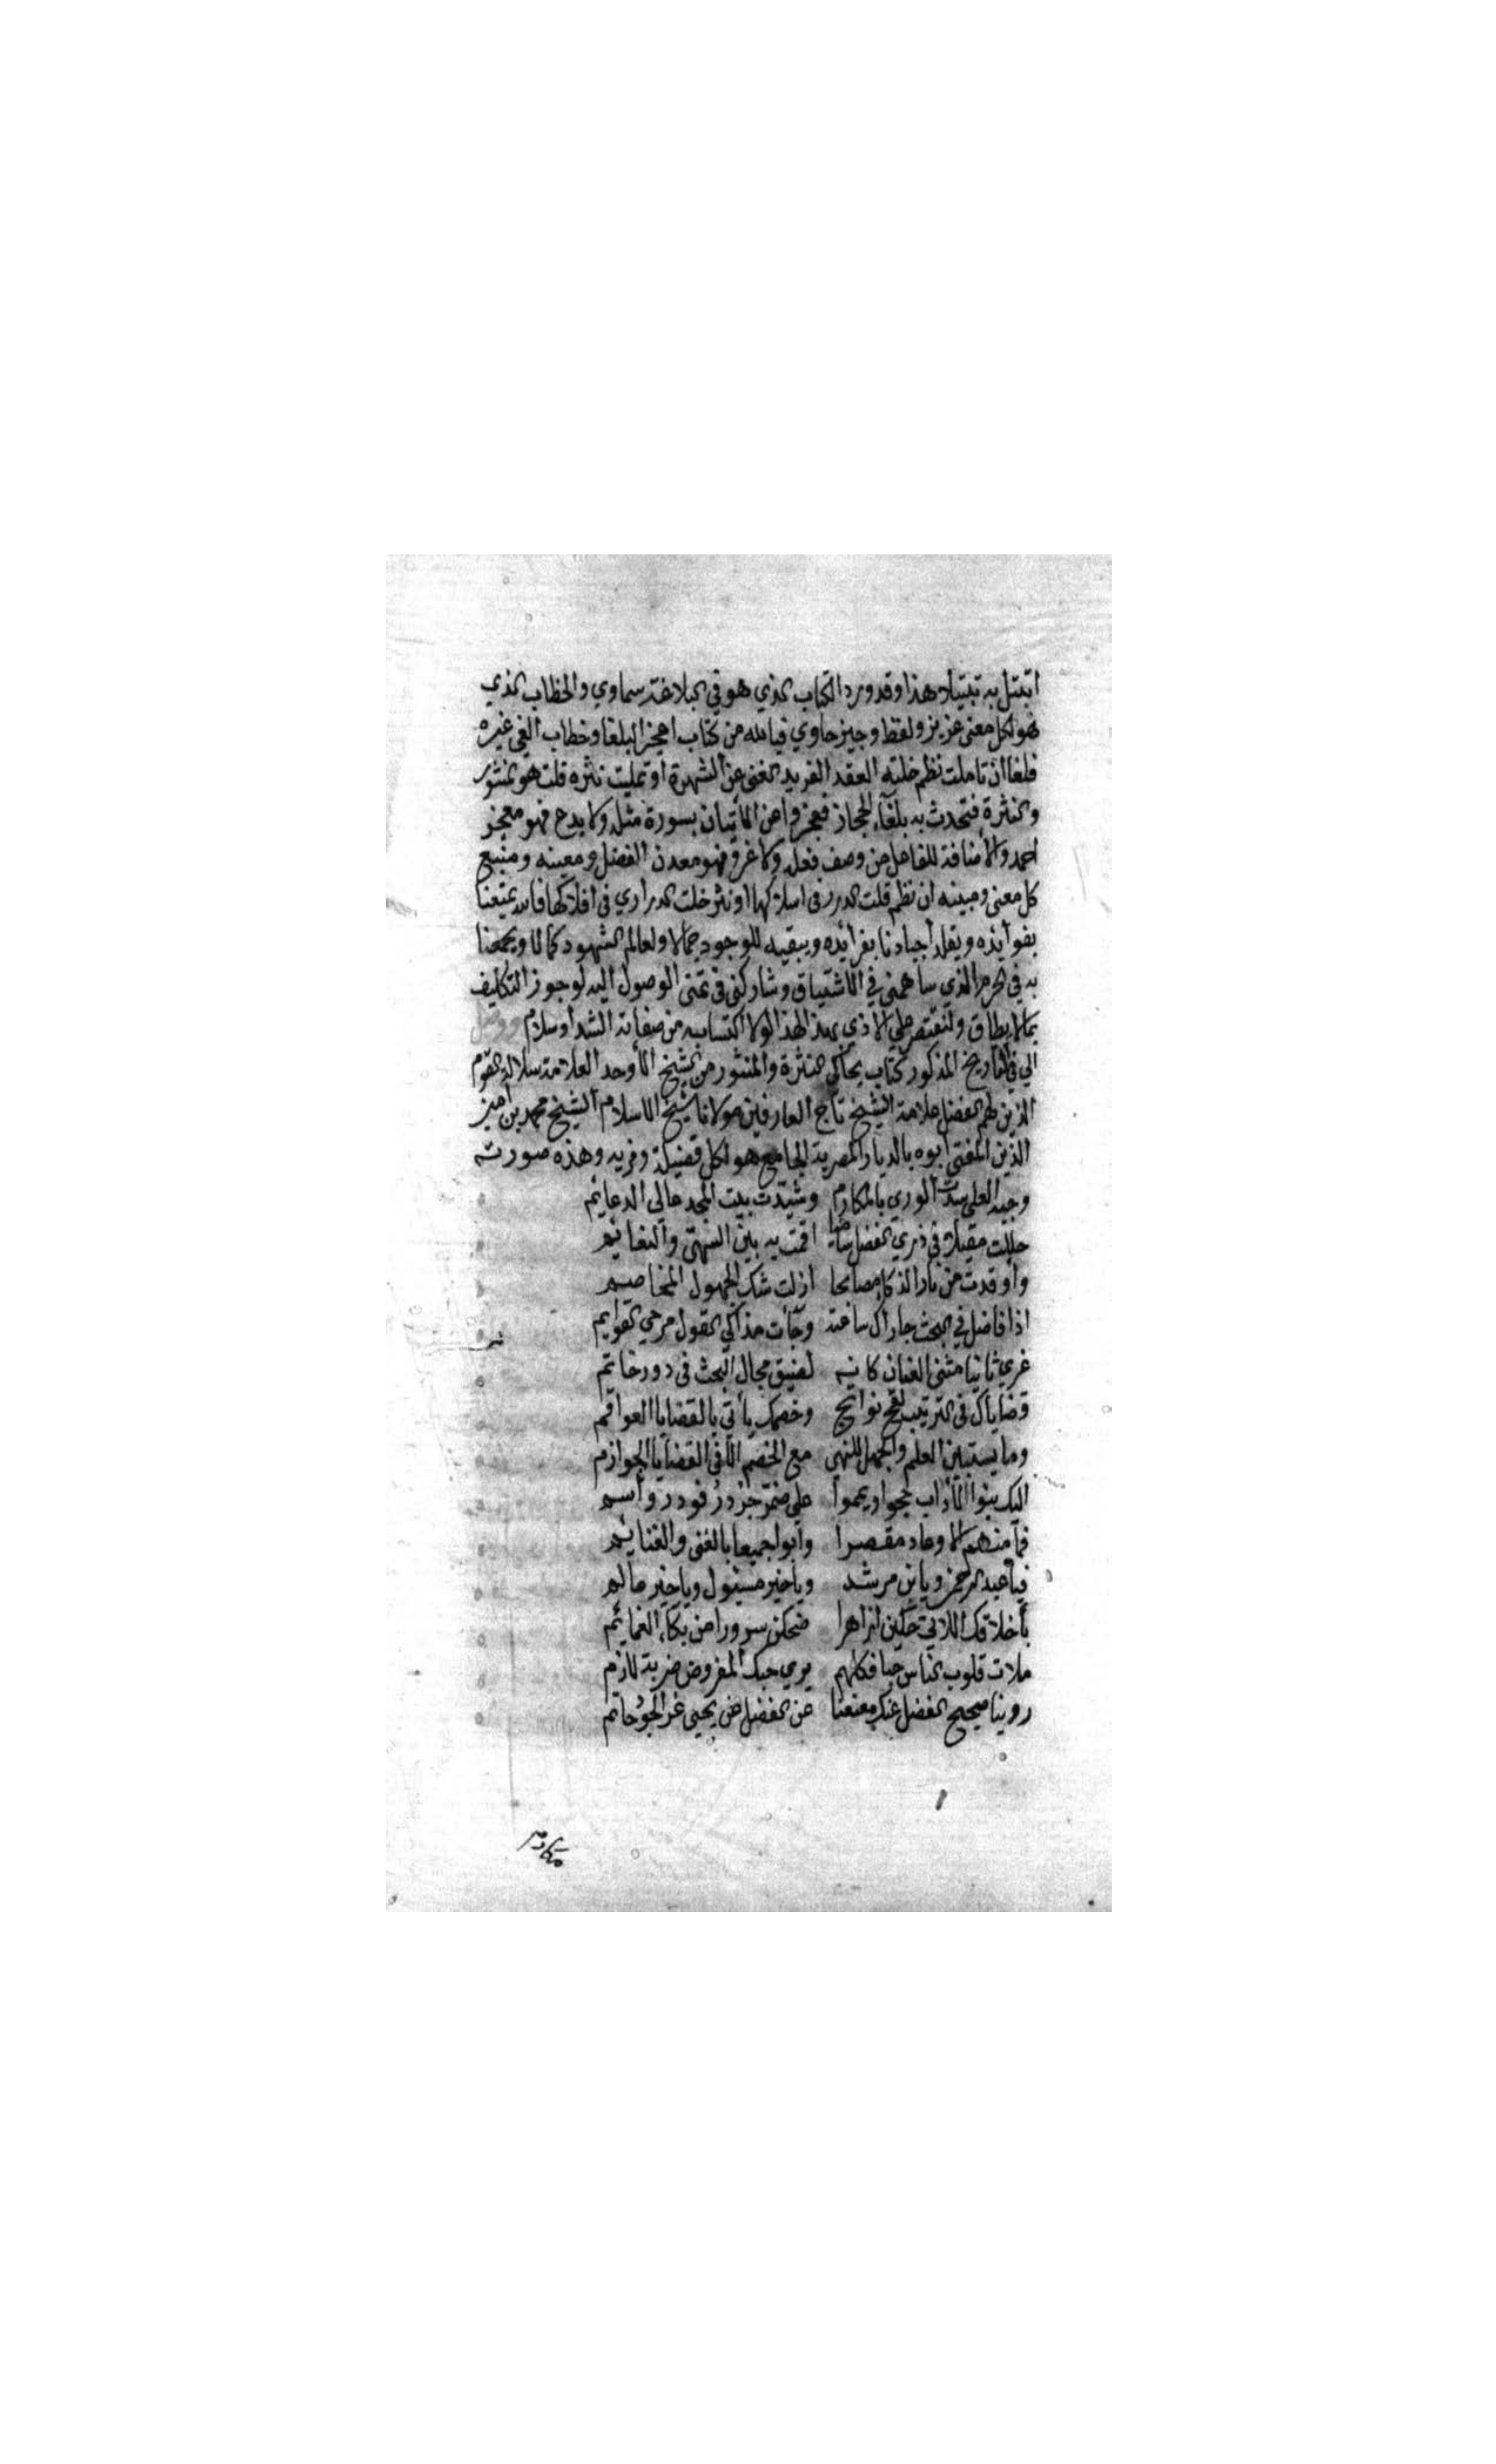 اتبتل به تبتيلا هذا وقد ورد الكتاب الذي هو في البلاغة سماوي والخطاب الذي
هو لكل معنى عزيز ولفظ وجيز حاوي فيا لله من كتاب اعجز البلغا وخطاب الغي غيره
فلغا ان تاملت نظم خلته العقد الفريد الغنى عن الشهرة او تمليت نثره قلت هو المنثور
والنثرة فتحدث به بلغآء الحجاز فعجزوا عن الأتيان بسورة مثله ولا بدع فهو معجز
احمد والأضافة للفاعل من وصف فعله ولا غرو فهو معدن الفضل ومعينه ومنبع
كل معنى ومبينه ان نظم قلت الدرر في اسلاكها او نثر خلت الدراري في افلاكها فالله يمتعنا
بفوائده ويقلد أجيادنا بفرائده ويبقيه للوجود جمالا ولعالم الشهود كمالا ويجمعنا
به في الحرم الذي ساهمني في الاشتياق وشاركني في تمنى الوصول اليه لو جوز التكليف
بما لا يطاق ولنقتصر على الاذي لهذا لولا اكتسابه من صفاته الشد أوسلام ووصل
الي في التاريخ المذكور كتاب يحاكي النثرة والمنثور من الشيخ الأوحد العلامة سلالة القوم
الذين لهم الفضل علامة الشيخ تاج العارفين مولانا شيخ الاسلام الشيخ محمد بن أمين
الدين المفتي أبوه بالديار المصرية الجامع هو لكل فضيلة ومزيه وهذه صورته
وجيه العلى سدت الورى بالمكارم وشيدت بيت المجد عالي الدعايم
حللت مقيلا في ذرى الفضل سامخا اقمت به بين السهى والنعائيم
وأوقدت من نار الذكاء مصابحا ازلت شك الجهول المخاصم
اذا فاضل في البحث جاراك ساعة وجأت مذاكي القول مرحى القوايم
غري ثانيا مثنى العنان كانه لضيق مجال البحث في دور خاتم
قضاياك في الترتيب لقح نواتج وخصمك يأتي بالقضايا العواقم
وما يستبين العلم والجهل للنهى مع الخصم الا في القضايا الجوازم
اليك بنوا الآداب حجوا ويمموا على ضمر
فما منهم الا وعاد مقصرا وآبوا جميعا بالغنى والغنايم
فيا عبد الرحمن ويا بن مرشد ويا خير مسئول ويا خير عالم
بأخلاقك اللاتي حكين ازاهرا ضحكن سرورا من بكآء الغمايم
ملات قلوب الناس حبا فكلهم يرى حبك المفروض ضربة لازم
روينا صحيح الفضل عنك معنعنا عن الفضل عن يحيى عن الجود حاتم
مكارم